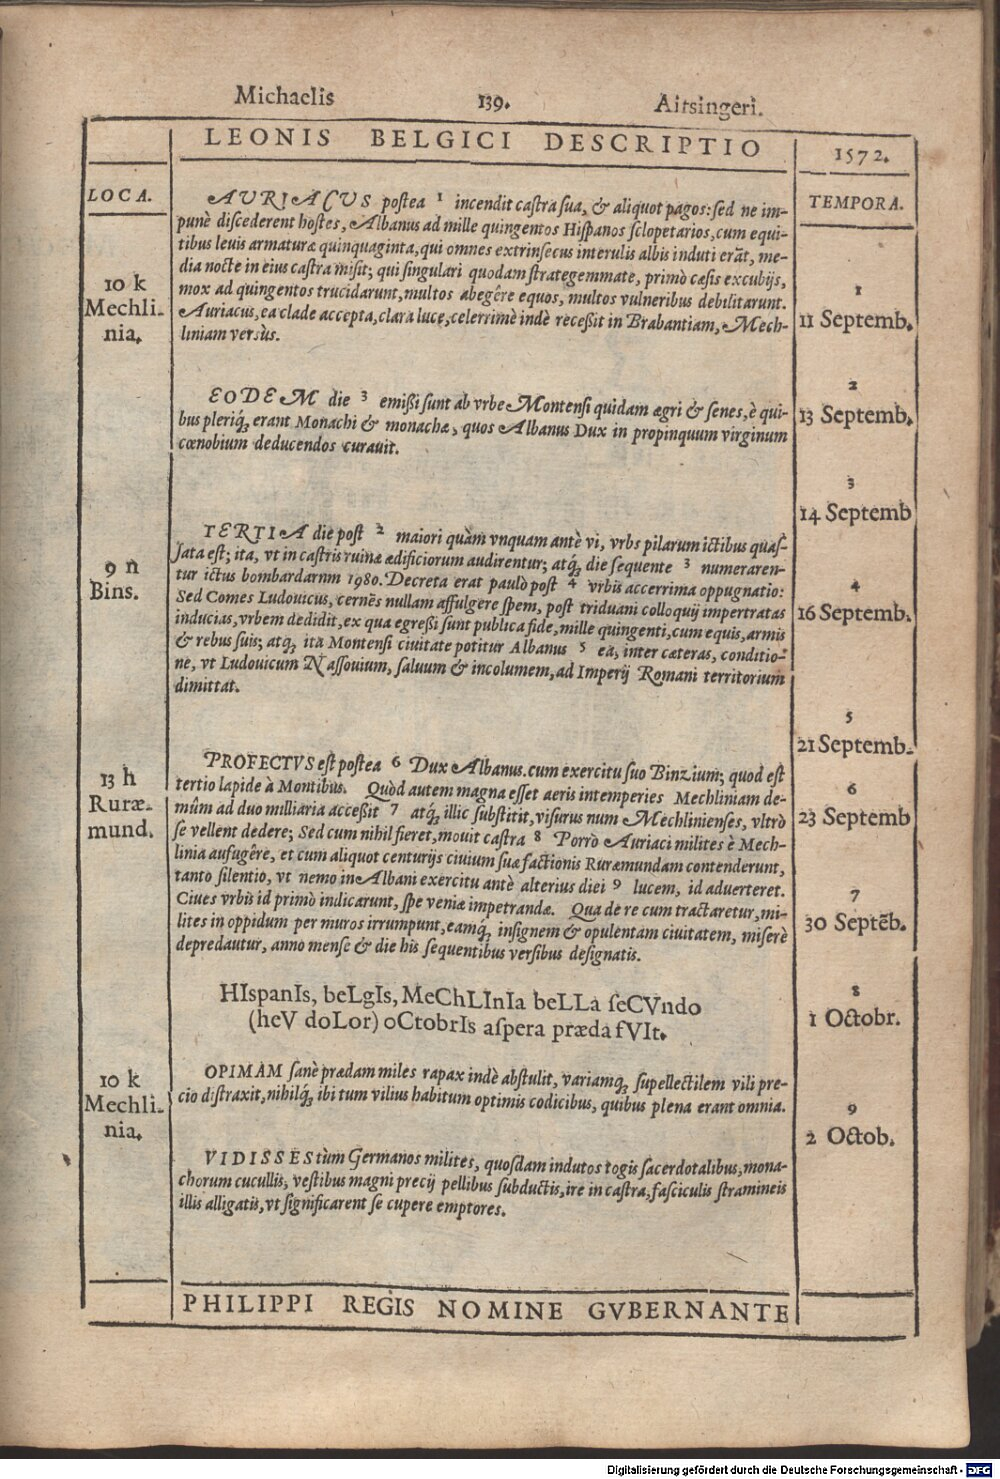 Michaelis 139. Aitsingeri.
LEONIS BELGICI DESCRIPTIO
1572.
LOCA.
TEMPORA.
AURIACUS postea 1 incendit castra sua, & aliquot pagos: sed ne im-
punè discederent hostes, Albanus ad mille quingentos Hispanos sclopetarios, cum equi-
tibus leuis armaturæ quinquaginta, qui omnes extrinsecus interulis albis induti erāt, me-
dia nocte in eius castra misit; qui singulari quodam strategemmate, primò cæsis excubijs,
mox ad quingentos trucidarunt, multos abegêre equos, multos vulneribus debilitarunt.
Auriacus, ea clade accepta, clara luce, celerrimè indè recessit in Brabantiam, Mech-
liniam versùs.
10 k
Mechli-
nia.
1
11 Septemb.
EODEM die 3 emissi sunt ab vrbe Montensi quidam ægri & senes, è qui-
bus pleriq́; erant Monachi & monachæ, quos Albanus Dux in propinquum virginum
cœnobium deducendos curauit.
2
13 Septemb.
3
14 Septemb
TERTIA die post 2 maiori quàm vnquam antè vi, vrbs pilarum ictibus quas-
sata est; ita, vt in castris ruinæ ædificiorum audirentur; atq́; die sequente 3 numeraren-
tur ictus bombardarnm 1980. Decreta erat paulò post 4 vrbis accerrima oppugnatio:
Sed Comes Ludouicus, cernēs nullam affulgere spem, post triduani colloquij impertratas
inducias, vrbem dedidit, ex qua egressi sunt publica fide, mille quingenti, cum equis, armis
& rebus suis; atq, ita Montensi ciuitate potitur Albanus 5 ea, inter cæteras, conditio-
ne, vt Ludouicum Nassouium, saluum & incolumem, ad Imperij Romani territorium
dimittat.
9 n
Bins.
4
16 Septemb.
5
21 Septemb.
PROFECTVS est postea 6 Dux Albanus. cum exercitu suo Binzium; quod est
tertio lapide à Montibus. Quòd autem magna esset aeris intemperies Mechliniam de-
mùm ad duo milliaria accessit 7 atq́; illic substitit, visurus num Mechlinienses, vltrò
se vellent dedere; Sed cum nihil fieret, mouit castra 8 Porrò Auriaci milites è Mech-
linia aufugêre, et cum aliquot centurijs ciuium suæ factionis Ruræmundam contenderunt,
tanto silentio, vt nemo in Albani exercitu antè alterius diei 9 lucem, id aduerteret.
Ciues vrbis id primò indicarunt, spe veniæ impetrandæ. Qua de re cum tractaretur, mi-
lites in oppidum per muros irrumpunt, eamq́; insignem & opulentam ciuitatem, miserè
depredautur, anno mense & die his sequentibus versibus designatis.
13 h
Ruræ-
mund.
6
23 Septemb
7
30 Septēb.
HIspanIs, beLgIs, MeChLInIa beLLa seCVndo
(heV doLor) oCtobrIs aspera præda fVIt.
8
1 Octobr.
OPIMAM sanè prædam miles rapax indè abstulit, variamq́; supellectilem vili pre-
cio distraxit, nihilq́; ibi tum vilius habitum optimis codicibus, quibus plena erant omnia.
10 k
Mechli-
nia.
9
2 Octob.
VIDISSES tùm Germanos milites, quosdam indutos togis sacerdotalibus, mona-
chorum cucullis, vestibus magni precij pellibus subductis, ire in castra, fasciculis stramineis
illis alligatis, vt significarent se cupere emptores.
PHILIPPI REGIS NOMINE GVBERNANTE
Digitalisierung gefördert durch die Deutsche Forschungsgemeinschaft - DFG